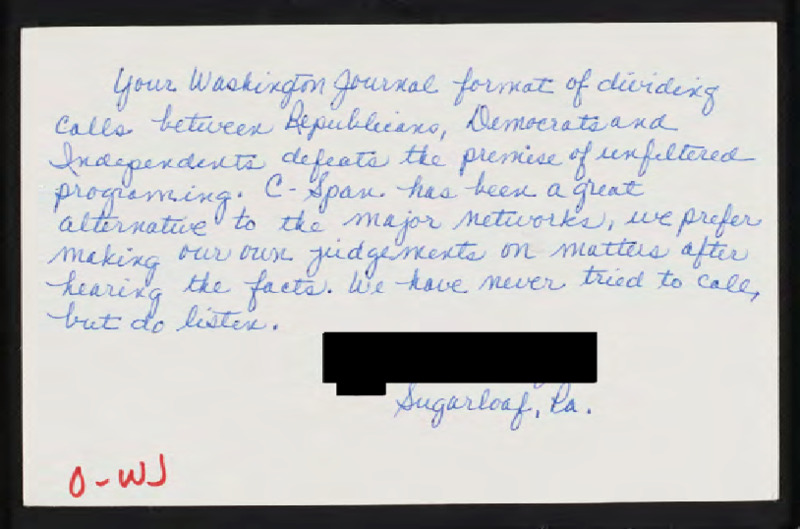 Your Washington Journal format of dividing
calls between Republicans, Democrats and
Independents defeats the premise of unfiltered
programing. C-Span has been a great
alternative to the major networks, we prefer
making our own judgements on matters after
hearing the facts. We have never tried to call,
but do listen.
Sugarloaf, Pa.
O-WJ